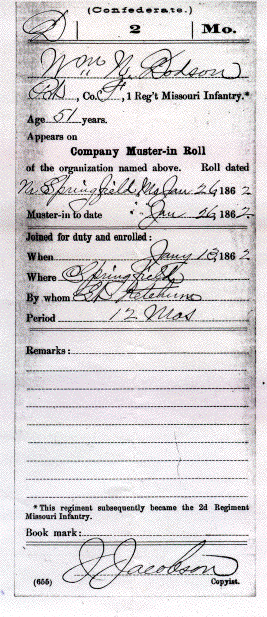 (Confederate.)
D | 2 | Mo.
Wm N. Dodson
, Co. F, 1 Reg't Missouri Infantry.*
Age 51 years.
Appears on
Company Muster-in Roll
of the organization named above. Roll dated
Nr Springfield, Mo Jan 26, 1862
Muster-in to date Jan 26, 1862
Joined for duty and enrolled:
When Jany 13, 1862
Where Springfield
By whom
Period 12 Mos
Remarks:
* This regiment subsequently became the 2d Regiment
Missouri Infantry.
Book mark:
J Jacobson
(655) Copyist.